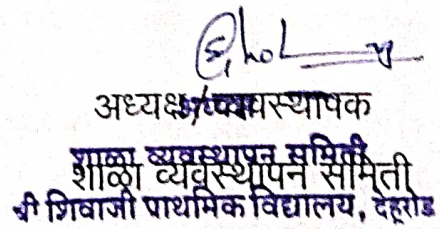 अध्यक्ष/व्यवस्थापक
शाळा व्यवस्थापन समिती
शाळा व्यवस्थापन समिती
श्री शिवाजी प्राथमिक विद्यालय, देहूरोड